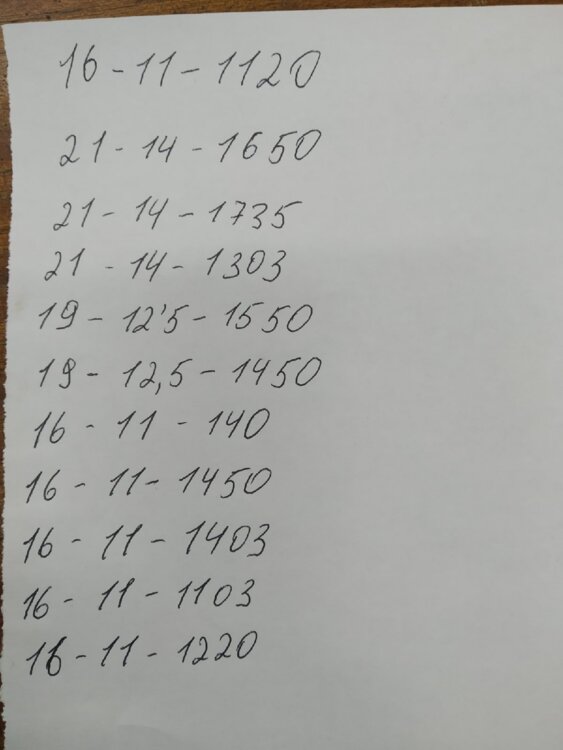 16 - 11 - 1120
21 - 14 - 1650
21 - 14 - 1735
21 - 14 - 1303
19 - 12'5 - 1550
19 - 12,5 - 1450
16 - 11 - 140
16 - 11 - 1450
16 - 11 - 1403
16 - 11 - 1103
16 - 11 - 1220